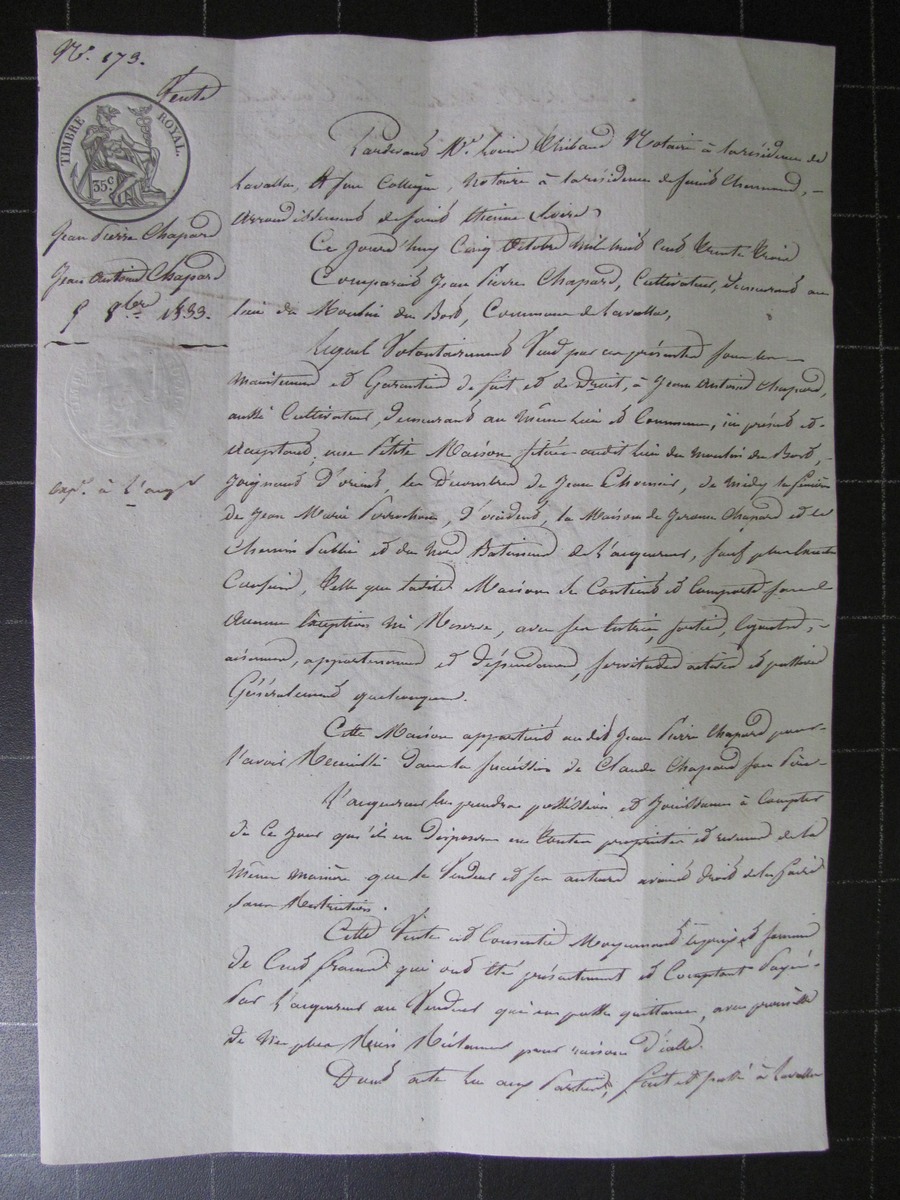 N.° 173.
Vente
TIMBRE ROYAL.
35 c
Jean Pierre Chapard
Jean Antoine Chapard
5 8bre 1833.
exp. à l'acqr
Pardevant Me Louis Thibaud Notaire à la résidence de
Lavalla, et son Collègue, Notaire à la résidence de Saint Chamond,
arrondissement de Saint Etienne Loire
Ce jourd'huy Cinq Octobre mil huit cent trente trois
Comparait Jean Pierre Chapard, Cultivateur, demeurant au
lieu du Moulin du Bost, Commune de Lavalla,
Lequel Volontairement Vend par ces présentes sous la
maintenue et Garantie de fait et de Droit, à Jean Antoine Chapard,
aussi Cultivateur, demeurant au même lieu et Commune, ici présent et
acceptant, une Petite Maison située audit lieu du Moulin du Bost,
Joignant D'orient, les Décombres de Jean, de midy
de Jean Marie, d'occident, la Maison de Chapard et le
Chemin Public et du Nord Batiment de l'acquereur, sauf plus
Confins, Telle que ladite Maison se Contient et Comporte sans
Aucune Exception ni Reserve, avec ses Entrées, sorties,
aisances, appartenances et dépendances, servitudes actives et passives
Généralement quelconques.
Cette Maison appartient audit Jean Pierre Chapard pour
l'avoir Recueillie dans la succession de Claude Chapard son Père
L'acquereur en prendra possession et Jouissance à Compter
de Ce Jour qu'il en Disposera en toute propriété et revenus de la
même manière que le Vendeur et ses auteurs avaient droit de le faire
sans Restriction.
Cette Vente est Consentie Moyennant le prix et somme
de Cent francs qui ont été présentement et Comptant Payés
Par l'acquereur au Vendeur qui en passe quittance, avec promesse
de n'en plus Rien Réclamer pour raison d'icelle.
Dont acte lu aux Parties, fait et passé à Lavalla